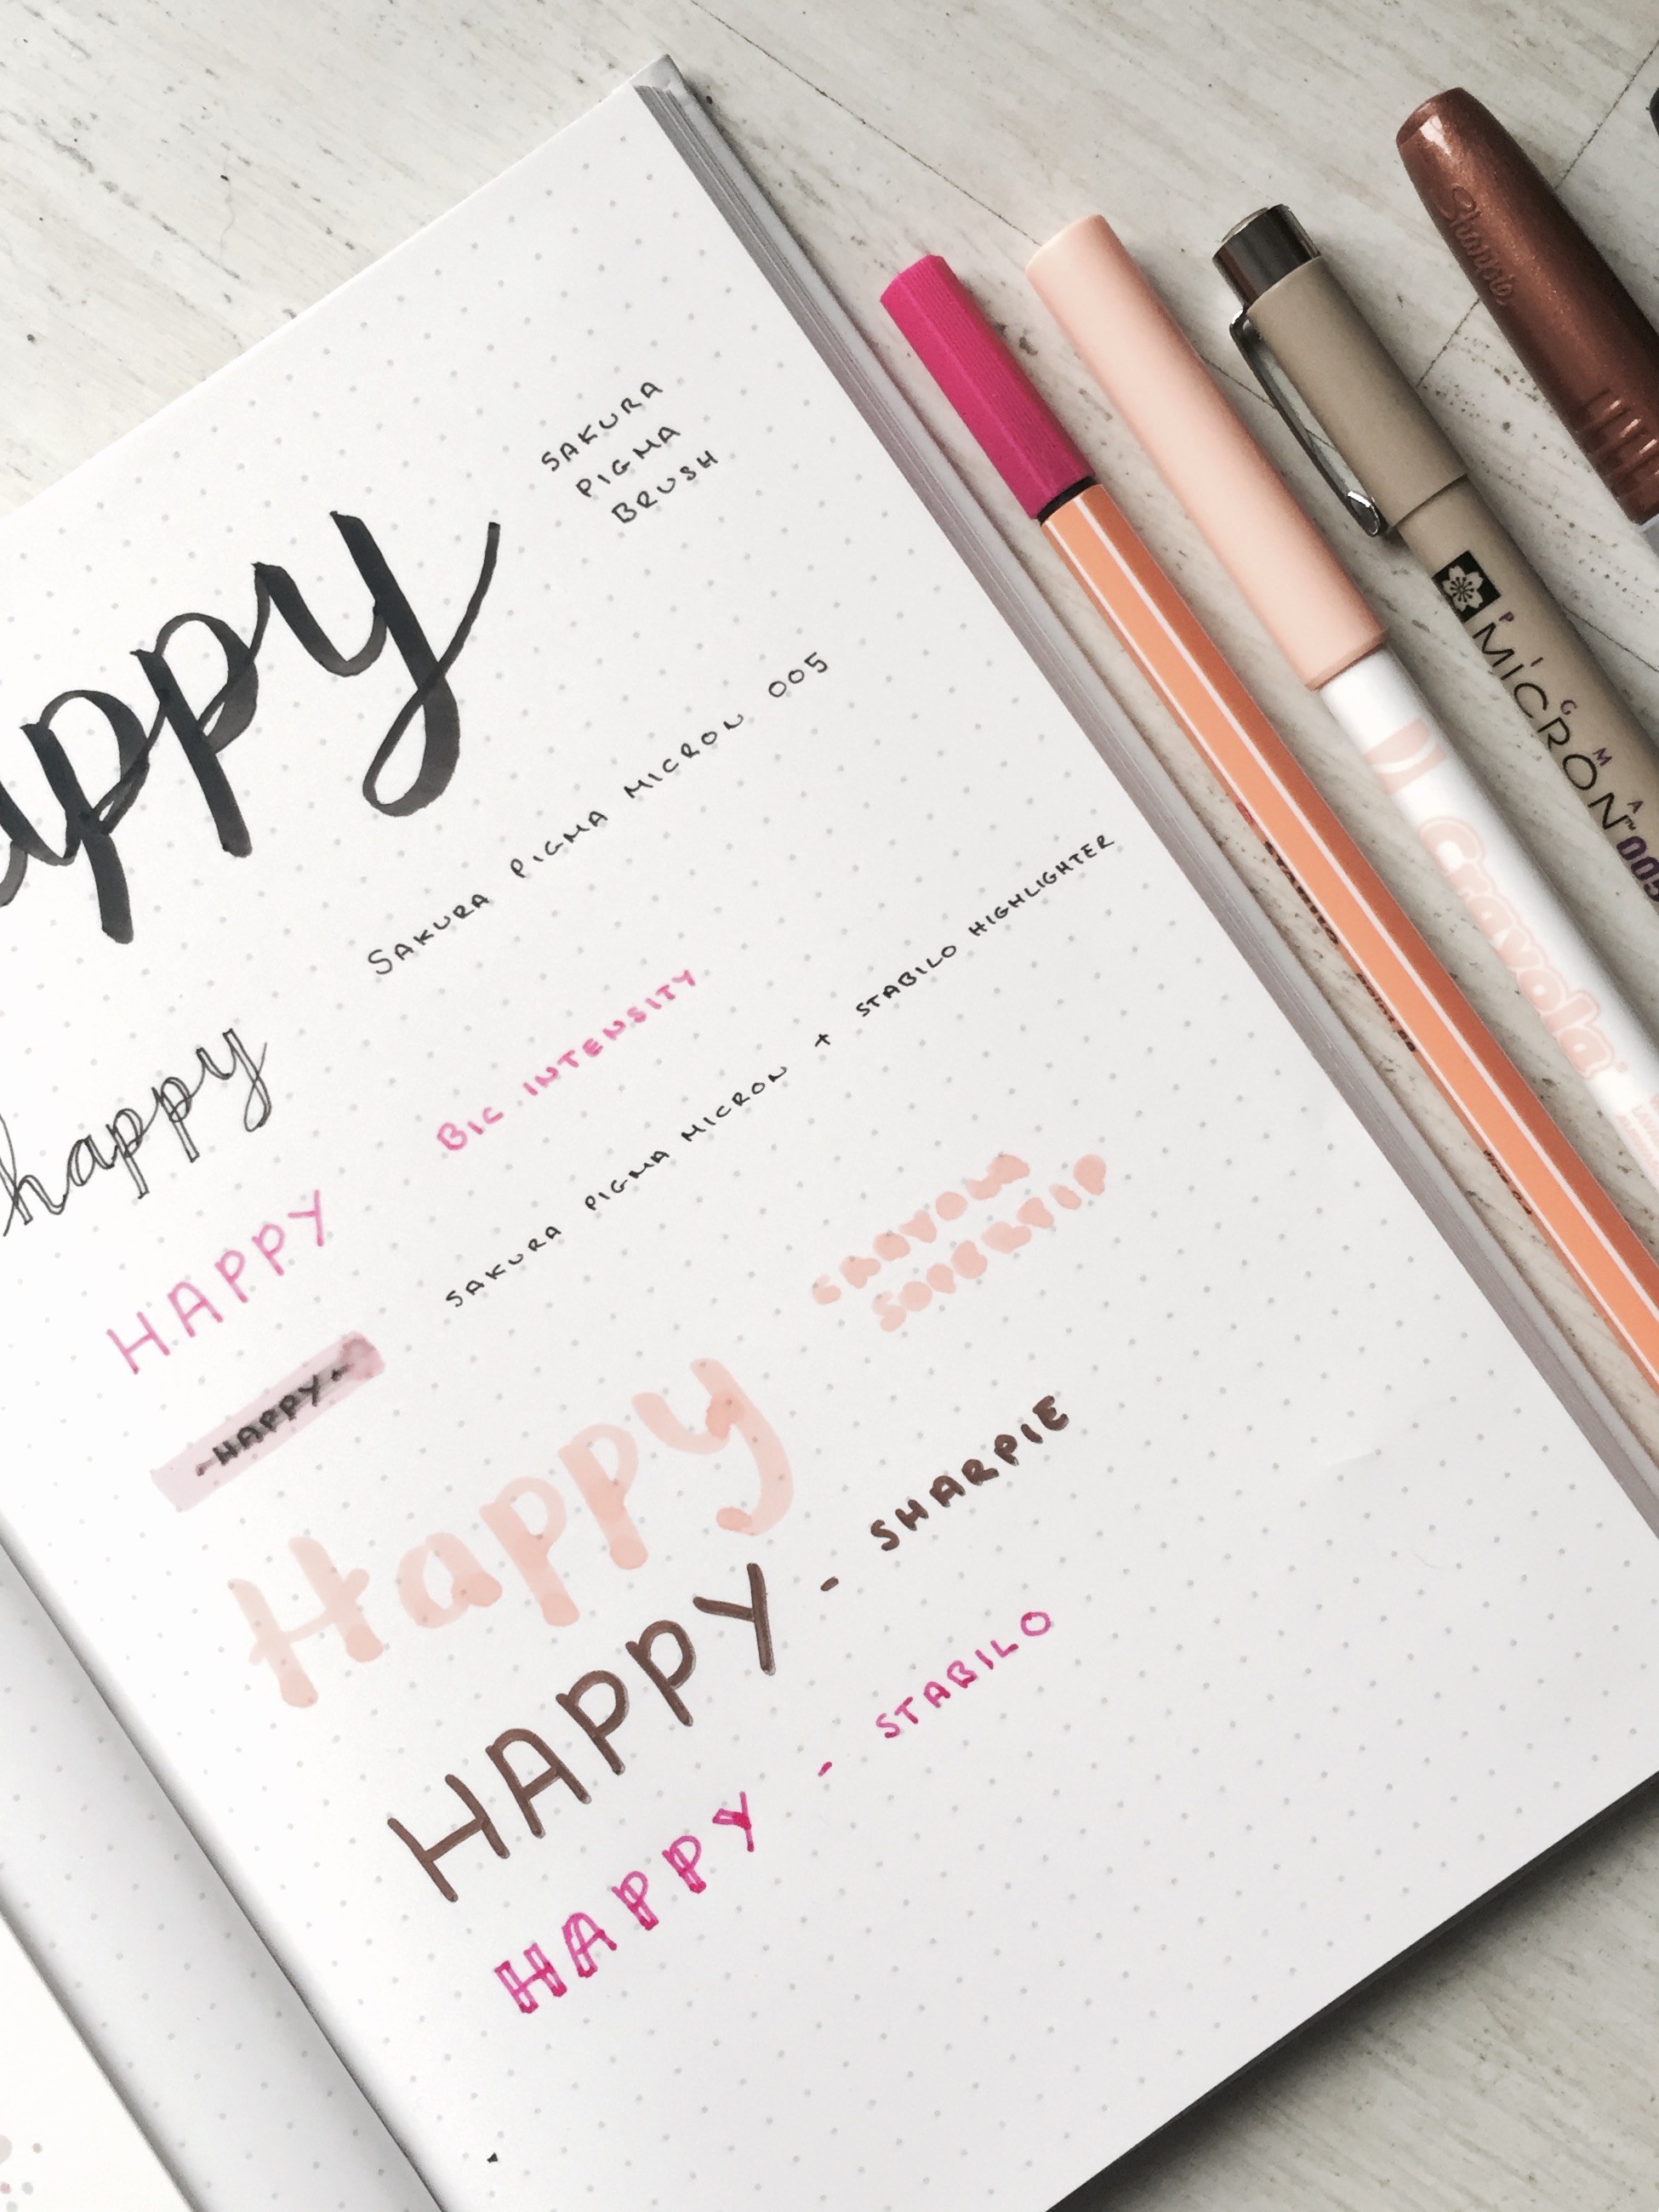 appy
SAKURA
PIGMA
BRUSH
happy
SAKURA PIGMA MICRON 005
HAPPY
BIC INTENSITY
- HAPPY -
SAKURA PIGMA MICRON + STABILO HIGHLIGHTER
Happy
CRAYOLA
SUPERTIP
HAPPY - SHARPIE
HAPPY - STABILO
Crayola
PIGMA
MICRON™ 005
Sharpie